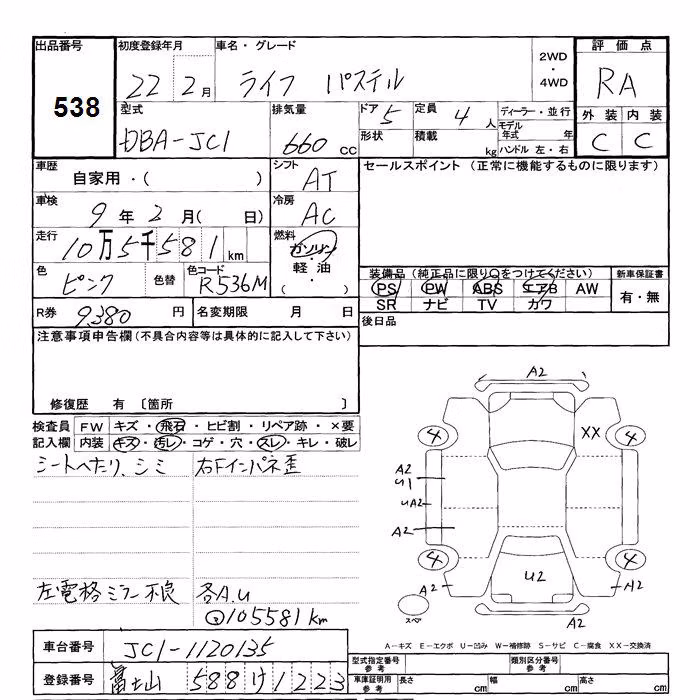 出品番号 初度登録年月 車名・グレード 評価点
538 22 2月 ライフ パステル 2WD・4WD RA
型式 排気量 ドア 5 定員 4人 ディーラー・並行 外装 内装
DBA-JC1 660cc 形状 積載 kg モデル年式 年 ハンドル 左・右 C C
車歴 シフト セールスポイント (正常に機能するものに限ります)
自家用・( ) AT
車検 冷房
9年2月( 日) AC
走行 燃料
10万5千581km ガソリン・軽油・( )
色 色替 色コード 装備品 (純正品に限り○をつけてください) 新車保証書
ピンク R536M PS PW ABS エアB AW 有・無
SR ナビ TV カワ
R券 9,380円 名変期限 月 日 後日品
注意事項申告欄(不具合内容等は具体的に記入して下さい)
修復歴 有 〔箇所 〕
検査員 FW キズ・飛石・ヒビ割・リペア跡・×要
記入欄 内装 キズ・汚レ・コゲ・穴・スレ・キレ・破レ
シートへたり、シミ 右Fインパネ歪
左電格ミラー不良 各A.U
105581km
A2
4 XX 4
A2
U1
UA2
A2
4 4
A2 U2 A2
スペア A2
A-キズ E-エクボ U-凹み W-補修跡 S-サビ C-腐食 XX-交換済
車台番号 JC1-1120135 型式指定番号 参考 類別区分番号 参考
登録番号 富士山 588 け 1223 車庫証明用 参考 長さ cm 幅 cm 高さ cm